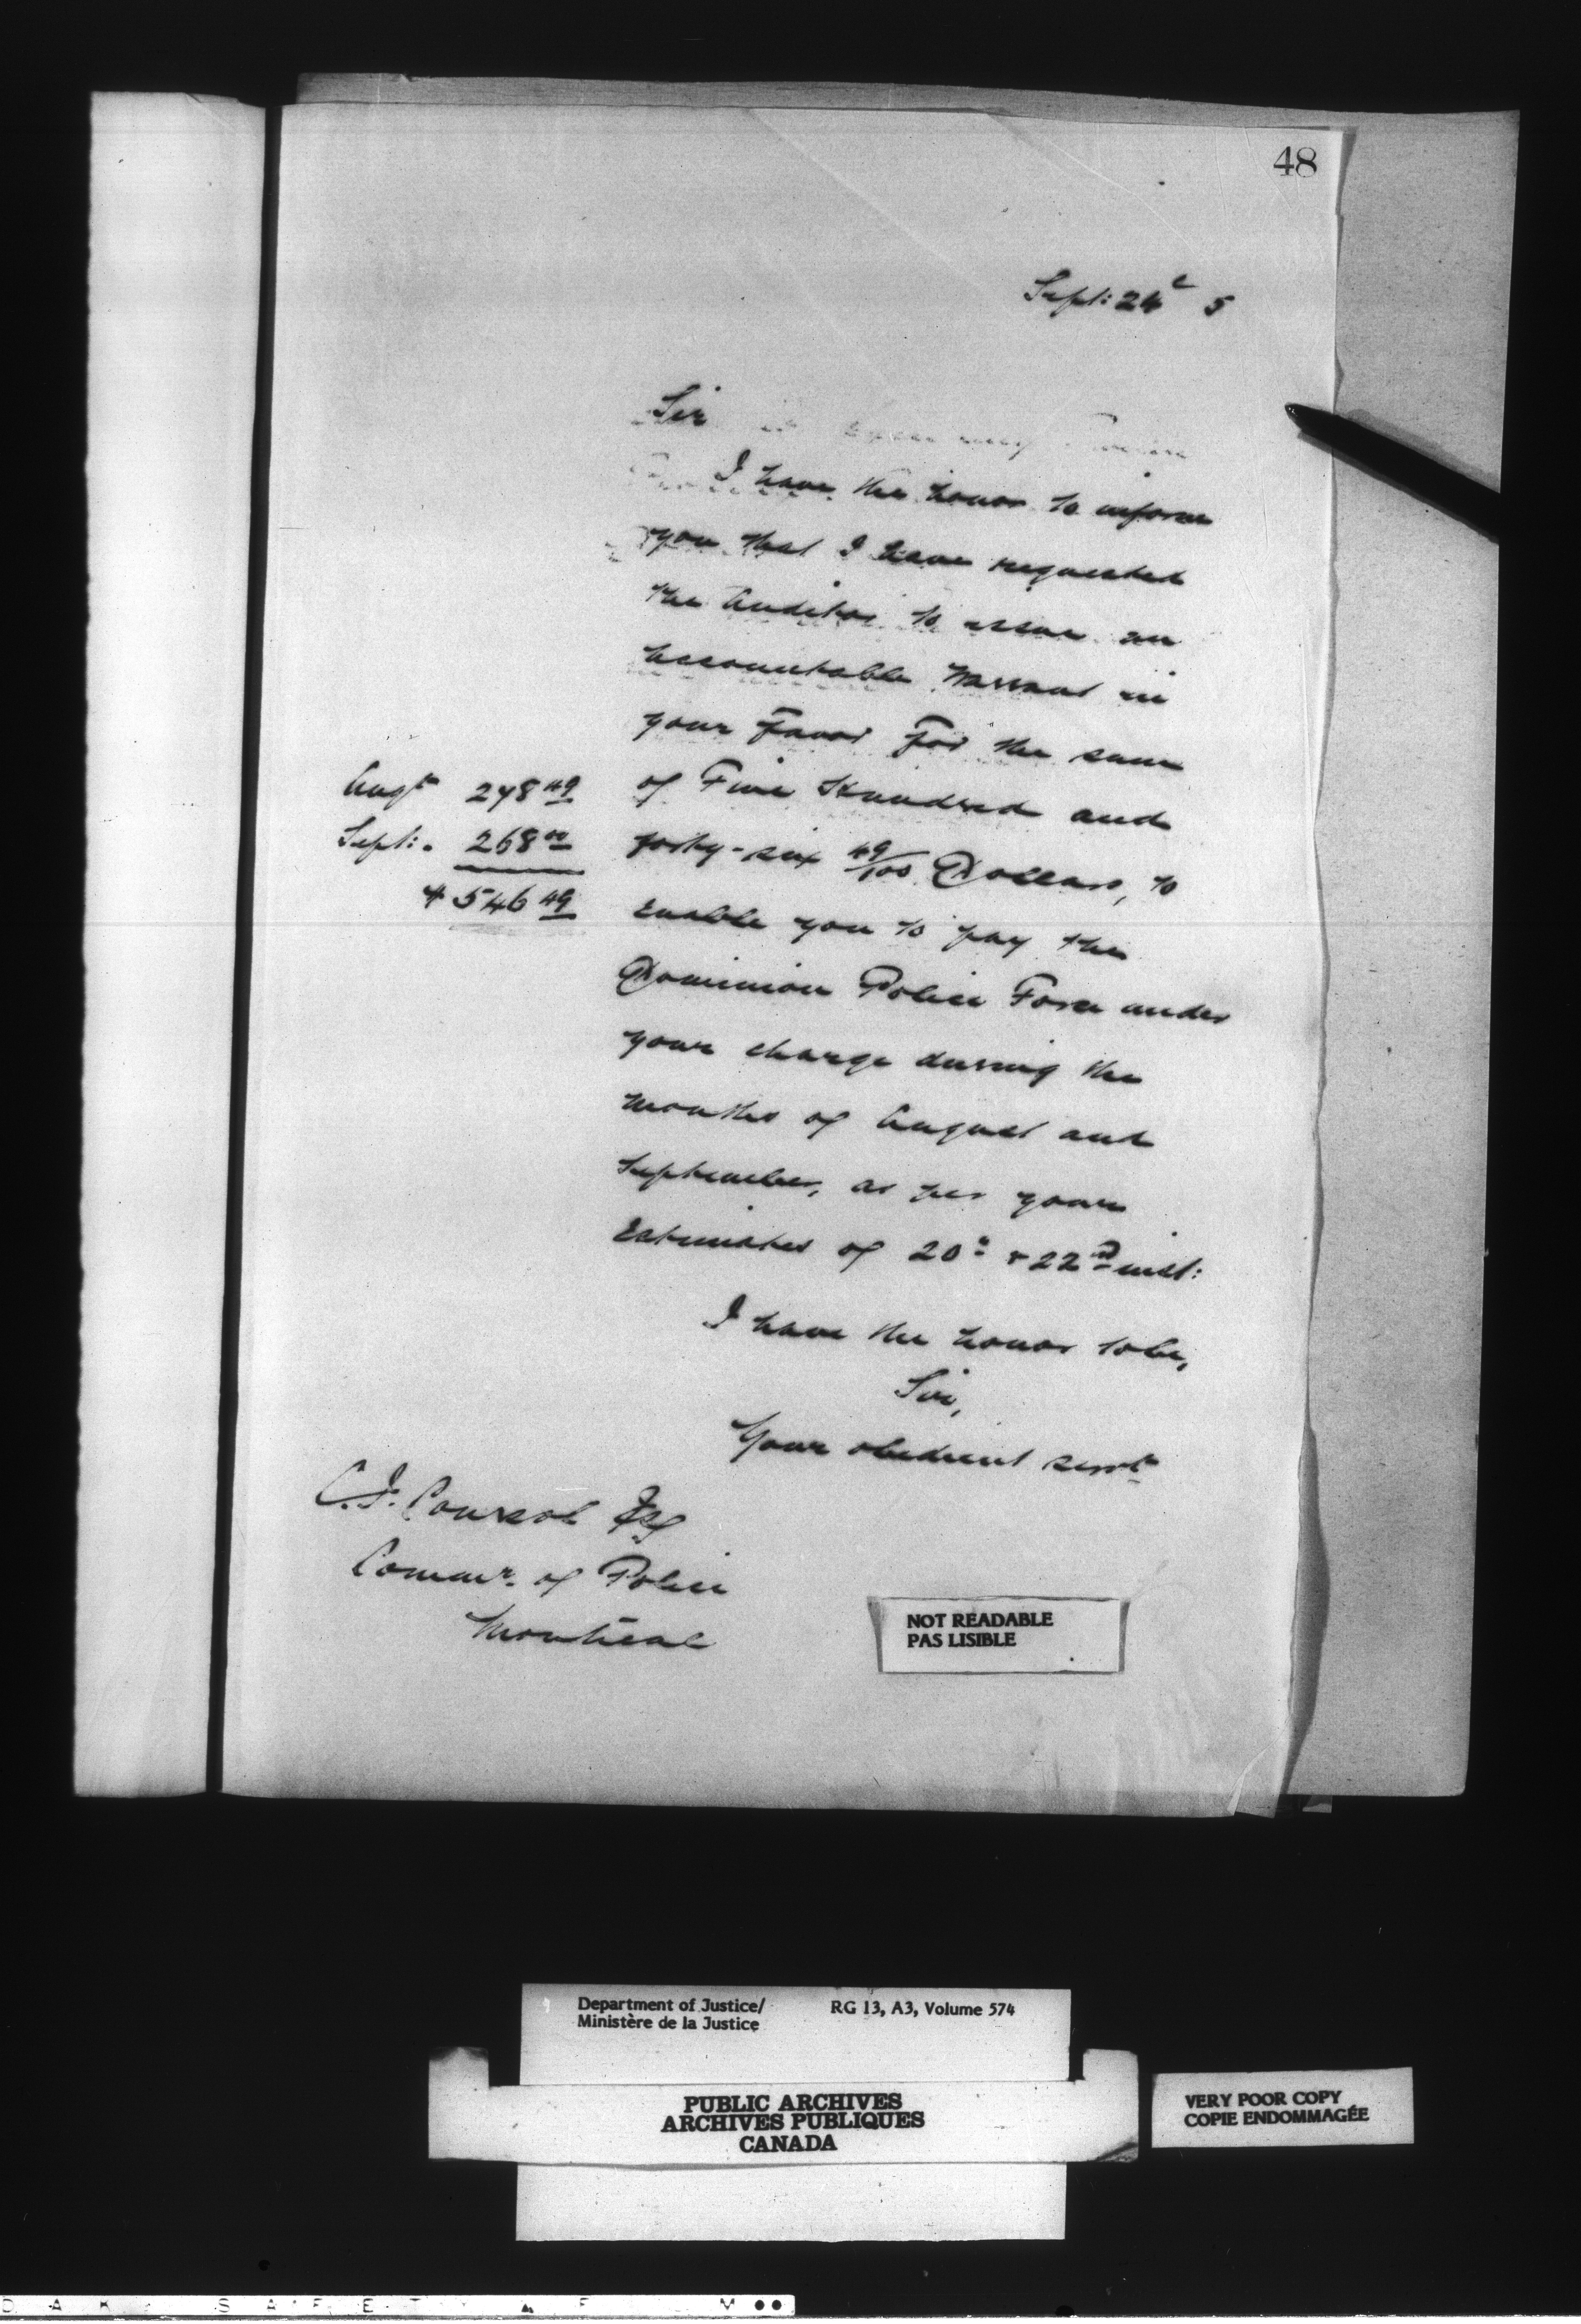 48
Sept: 24 5
Sir
I have the honor to inform
you that I have requested
the Auditor to issue an
Accountable Warrant in
your Favor For the sum
Augt 278 49
of Five Hundred and
Sept: 268 00
forty-six 49/100 Dollars, to
$ 546 49
Enable you to pay the
Dominion Police Force under
your charge during the
Months of August and
September, as per your
Estimates of 20th & 22nd inst:
I have the honor to be,
Sir,
Your obedient servt
C. J. Coursol Esq
Commr. of Police
Montreal
NOT READABLE
PAS LISIBLE
Department of Justice/ RG 13, A3, Volume 574
Ministère de la Justice
PUBLIC ARCHIVES
ARCHIVES PUBLIQUES
CANADA
VERY POOR COPY
COPIE ENDOMMAGÉE
S A F E T Y